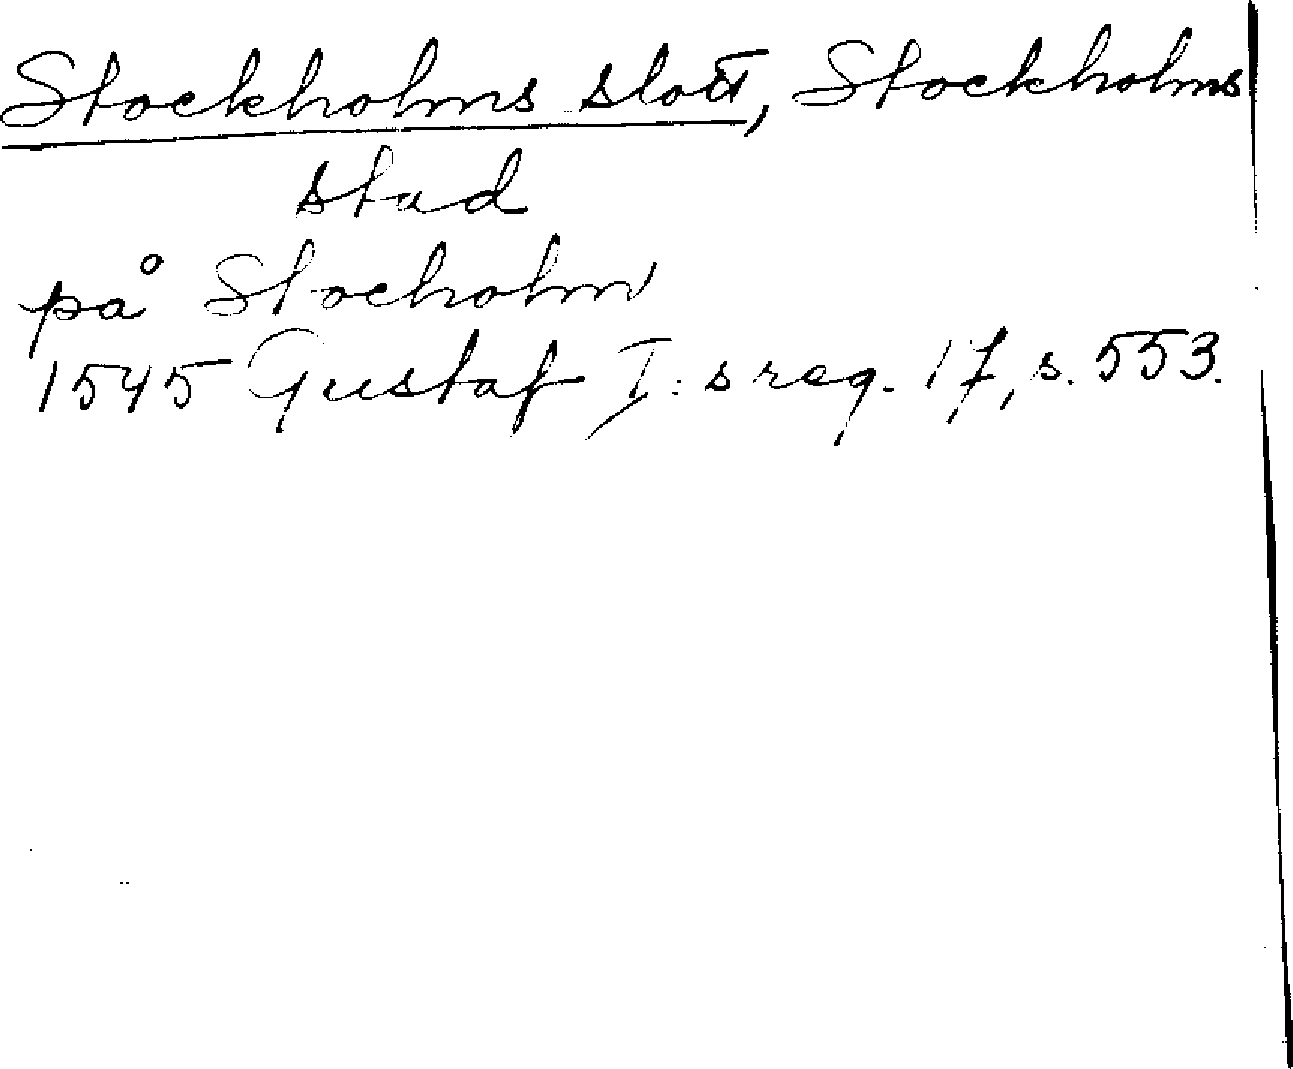 Stockholms slott, Stockholms
stad
på Stocholm
1545 Gustaf I:s reg. 17, s. 553.